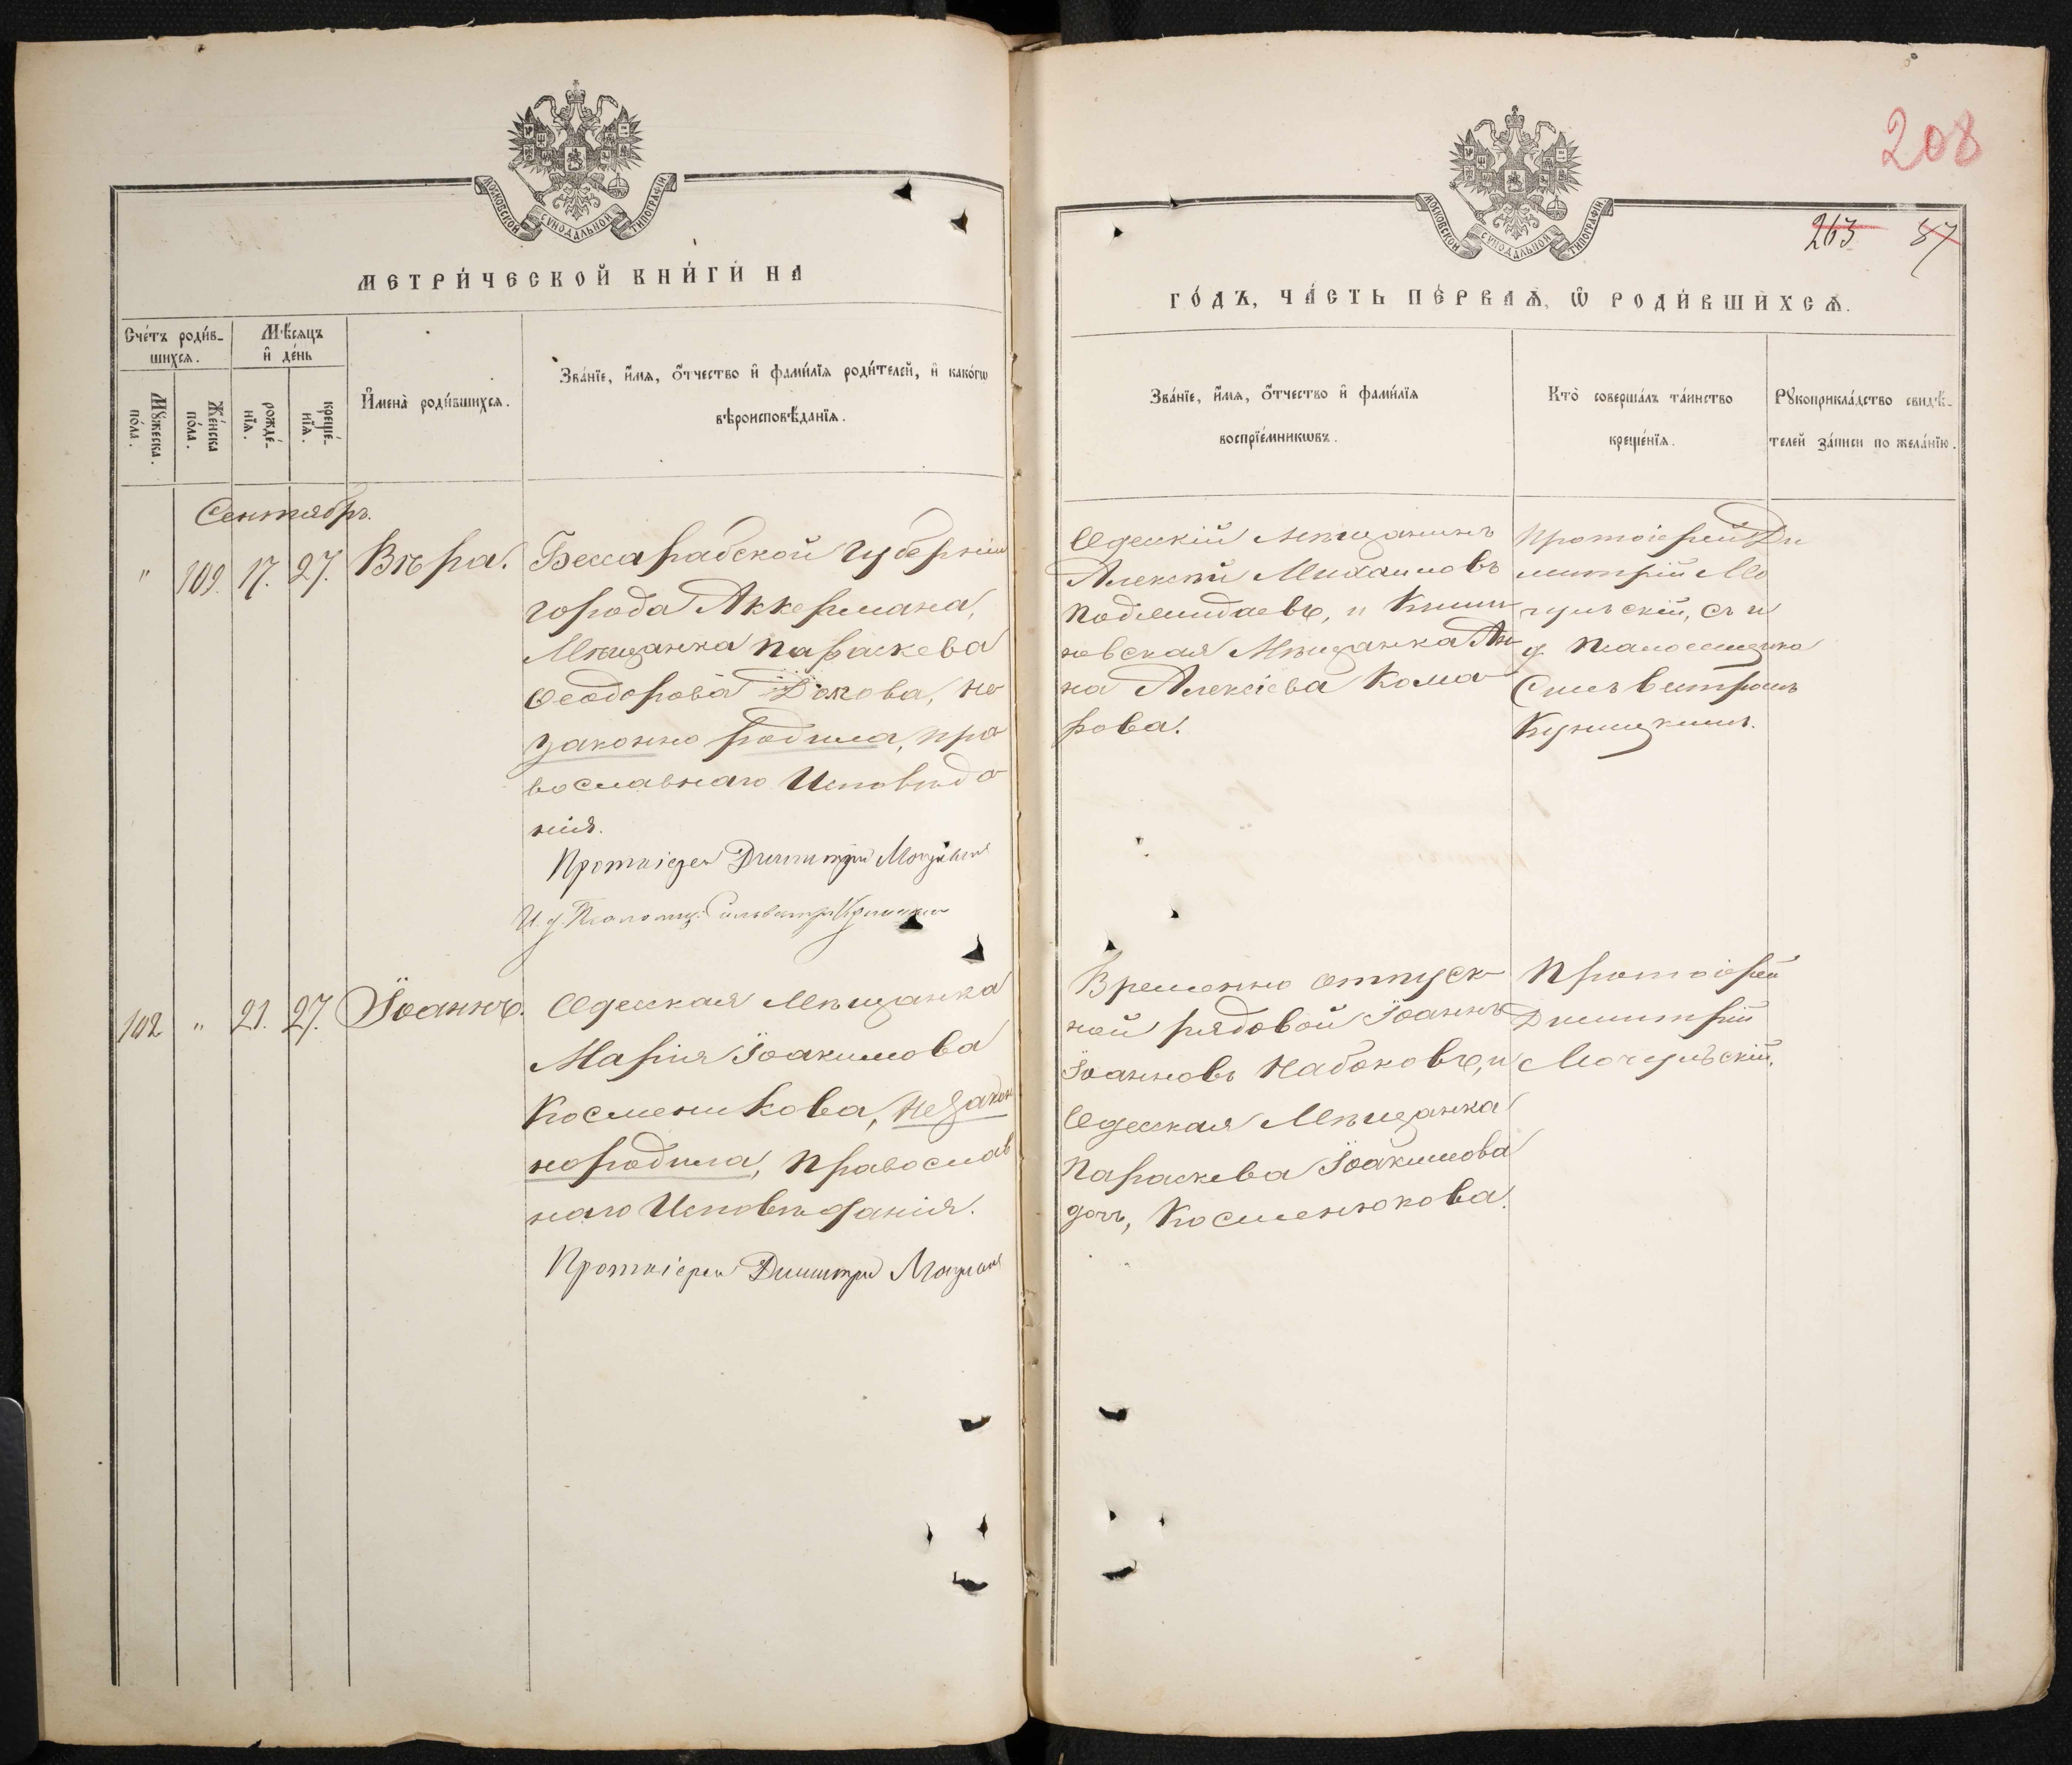 208
263 87
МОСКОВСКОЙ СѴНОДАЛЬНОЙ ТИПОГРАФІИ
МЕТРИ́ЧЕСКОЙ КНИ́ГИ НА
Сче́тъ роди́в-
шихсѧ.
Мѣ́сѧцъ
и҆ де́нь
Мꙋ́жеска
по́ла.
Же́нска
по́ла.
рожде́-
нїѧ.
креще́-
нїѧ.
И҆мена̀ роди́вшихсѧ.
Зва́нїе, и҆́мѧ, ѻ҆́тчество и҆ фами́лїѧ роди́телей, и҆ како́гѡ
вѣроисповѣ́данїѧ.
Сентябрь.
" 109. 17. 27. Вѣра.
Бессарабской губерніи
города Аккермана,
Мѣщанка Параскева
Ѳеодорова, не
законно родила, пра
вославнаго Исповѣда
нія.
Протоіерей Димитрій Мочульскій
И. д. Псаломщ. Сильвестръ Куницкій
102 " 21. 27. Іоаннъ.
Одесская Мѣщанка
Марія Іоакимова
незакон
нородила, Православ
наго Исповѣданія.
Протоіерей Димитрій Мочульскій
МОСКОВСКОЙ СѴНОДАЛЬНОЙ ТИПОГРАФІИ
ГО́ДЪ, ЧА́СТЬ ПЕ́РВАѦ, Ѡ҆ РОДИ́ВШИХСѦ.
Зва́нїе, и҆́мѧ, ѻ҆́тчество и҆ фами́лїѧ
воспрїе́мникѡвъ.
Кто̀ соверша́лъ та́инство
креще́нїѧ.
Рꙋкоприкла́дство свидѣ́-
телей за́писи по жела́нїю.
Одесскій мѣщанинъ
Алексѣй Михаиловъ
и Киши
невская Мѣщанка Ан
на Алексіева Кома
рова.
Протоіерей Ди
митрій Мо
чульскій, съ и
д. Псаломщико
Сильвестромъ
Куницкимъ.
Временно отпуск
ной рядовой Іоаннъ
Іоанновъ Набоковъ, и
Одесская Мѣщанка
Параскева Іоакимова
дочь, Косменюкова.
Протоіерей
Димитрій
Мочульскій.